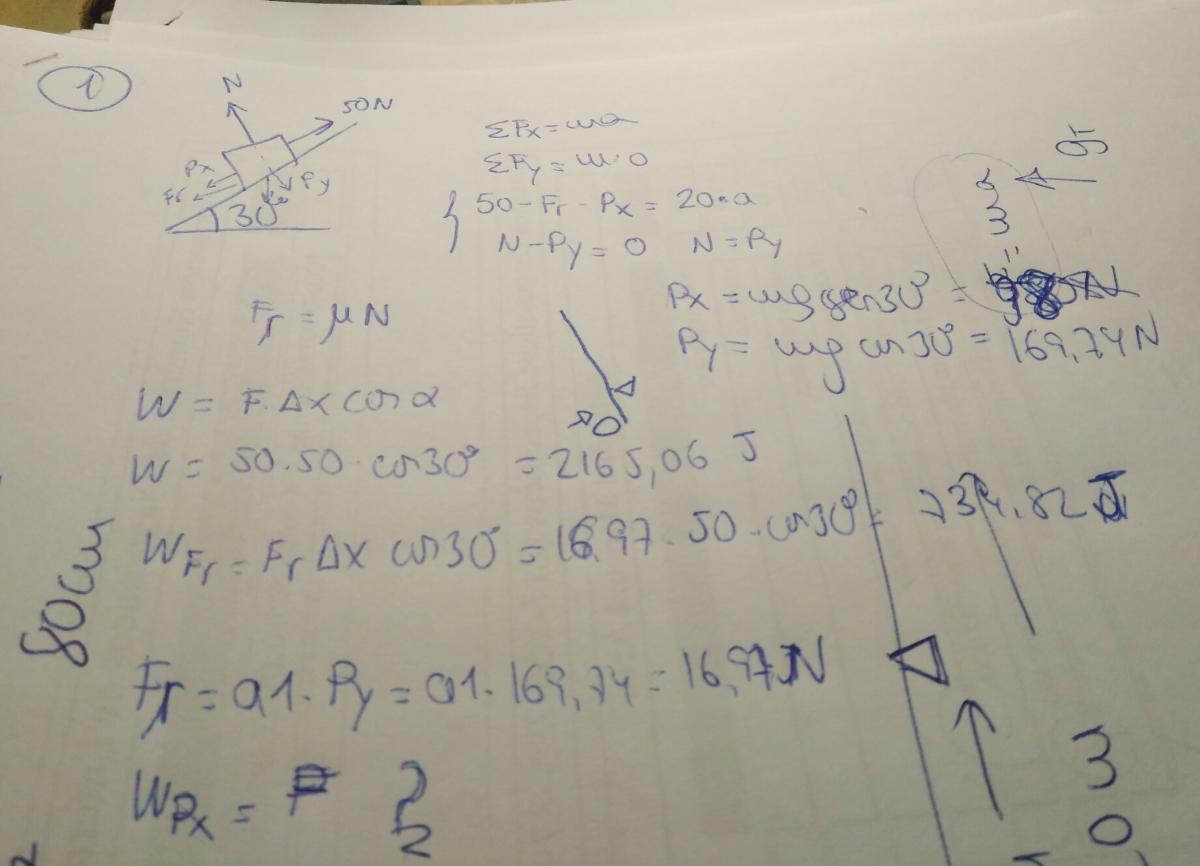 1
N
50N
Px
Fr
Py
30°
ΣFx = ma
ΣFy = m·0
50 - Fr - Px = 20·a
N - Py = 0 N = Py
Fr = μN
Px = mg sen30° =
Py = mg cos30° = 169,74 N
W = F·Δx cosα
W = 50·50·cos30° = 2165,06 J
WFr = Fr Δx cos30° = 16,97·50·cos30° = 734,82 J
Fr = 0,1·Py = 0,1·169,74 = 16,97 N
WPx =
80cm
gr
3
3
0